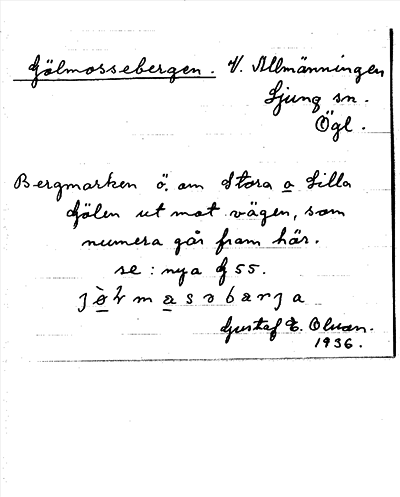 Gölmossebergen. V. Allmänningen
Ljung sn.
Ögl.
Bergmarken ö. om Stora o Lilla
Gölen ut mot vägen, som
numera går fram här.
se: nya G 55.
Gustaf E. Olsson.
1936.